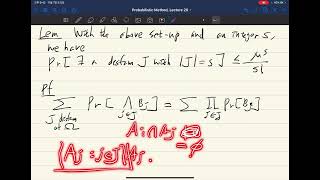 Probabilistic Method, Lecture 20
Lem With the above set-up and an integer s,
we have
Pr[∃ a disfam J with |J|=s] ≤ μ^s / s!
Pf
∑ Pr[ ∧ Bj ] = ∑ ∏ Pr[Bj]
J disfam j∈J J j∈J
Ai∩Aj = ∅
{Aj : j∈J}